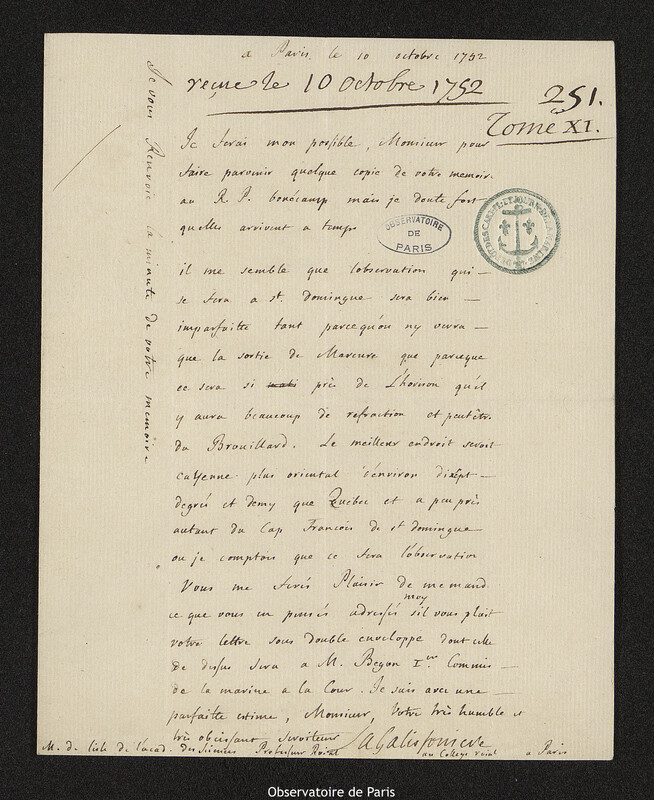 a Paris. le 10 octobre 1752
reçue le 10 octobre 1752
251.
Tome XI.
Je ferai mon possible, Monsieur pour
faire parvenir quelque copie de votre memoire
au R. P. bonécamp mais je doute fort
quelles arrivent a temps
OBSERVATOIRE
DE
PARIS
il me semble que lobservation qui
se fera a st. domingue sera bien
imparfaitte tant parcequon ny verra
que la sortie de Mercure que parceque
ce sera si près de L'horison qu'il
y aura beaucoup de refraction et peutêtre
du Brouillard. Le meilleur endroit seroit
Cayenne plus oriental d'environ dixsept
degrés et demy que Quebec et a peu près
autant du Cap François de st domingue
ou je comptois que ce fera l'observation
Vous me ferés Plaisir de me mand
ce que vous en pensés adressés moy sil vous plait
votre lettre sous double enveloppe dont celle
de dessus sera a M. Begon 1er Commis
de la marine a la Cour. Je suis avec une
parfaitte estime, Monsieur, Votre très humble et
très obeissant serviteur LaGalissoniere
M. de lisle de l'acad. des Sciences Professeur Roial au College roial a Paris
Je vous Renvoie la minute de votre memoire
Observatoire de Paris